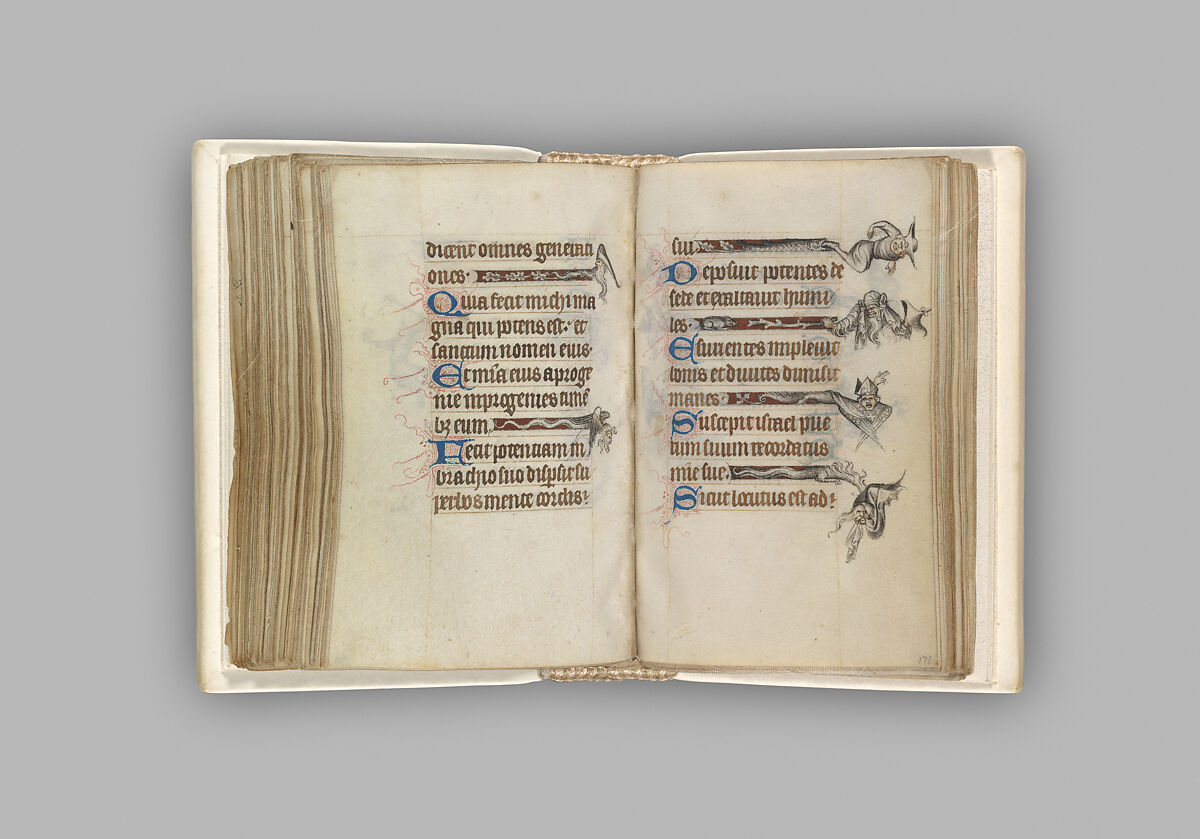 dicent omnes generati
ones.
Quia fecit michi ma
gna qui potens est. et
sanctum nomen eius.
Et mia eius a proge
nie in progenies timē
bȝ eum
Fecit potentiam in
brachio suo dispsit su
perbos mente cordis.
sui.
Deposuit potentes de
sede et exaltauit humi
les.
Esurientes impleuit
bonis et diuites dimisit
inanes.
Suscepit israel pue
rum suum recordatus
mie sue.
Sicut locutus est ad.
171